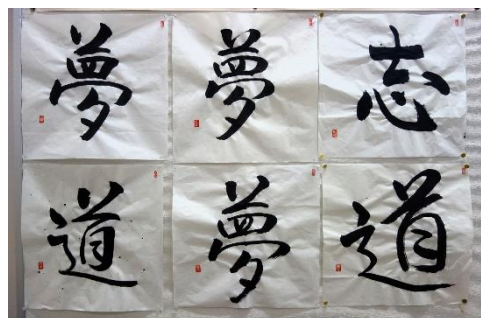 夢 夢 志
道 夢 道